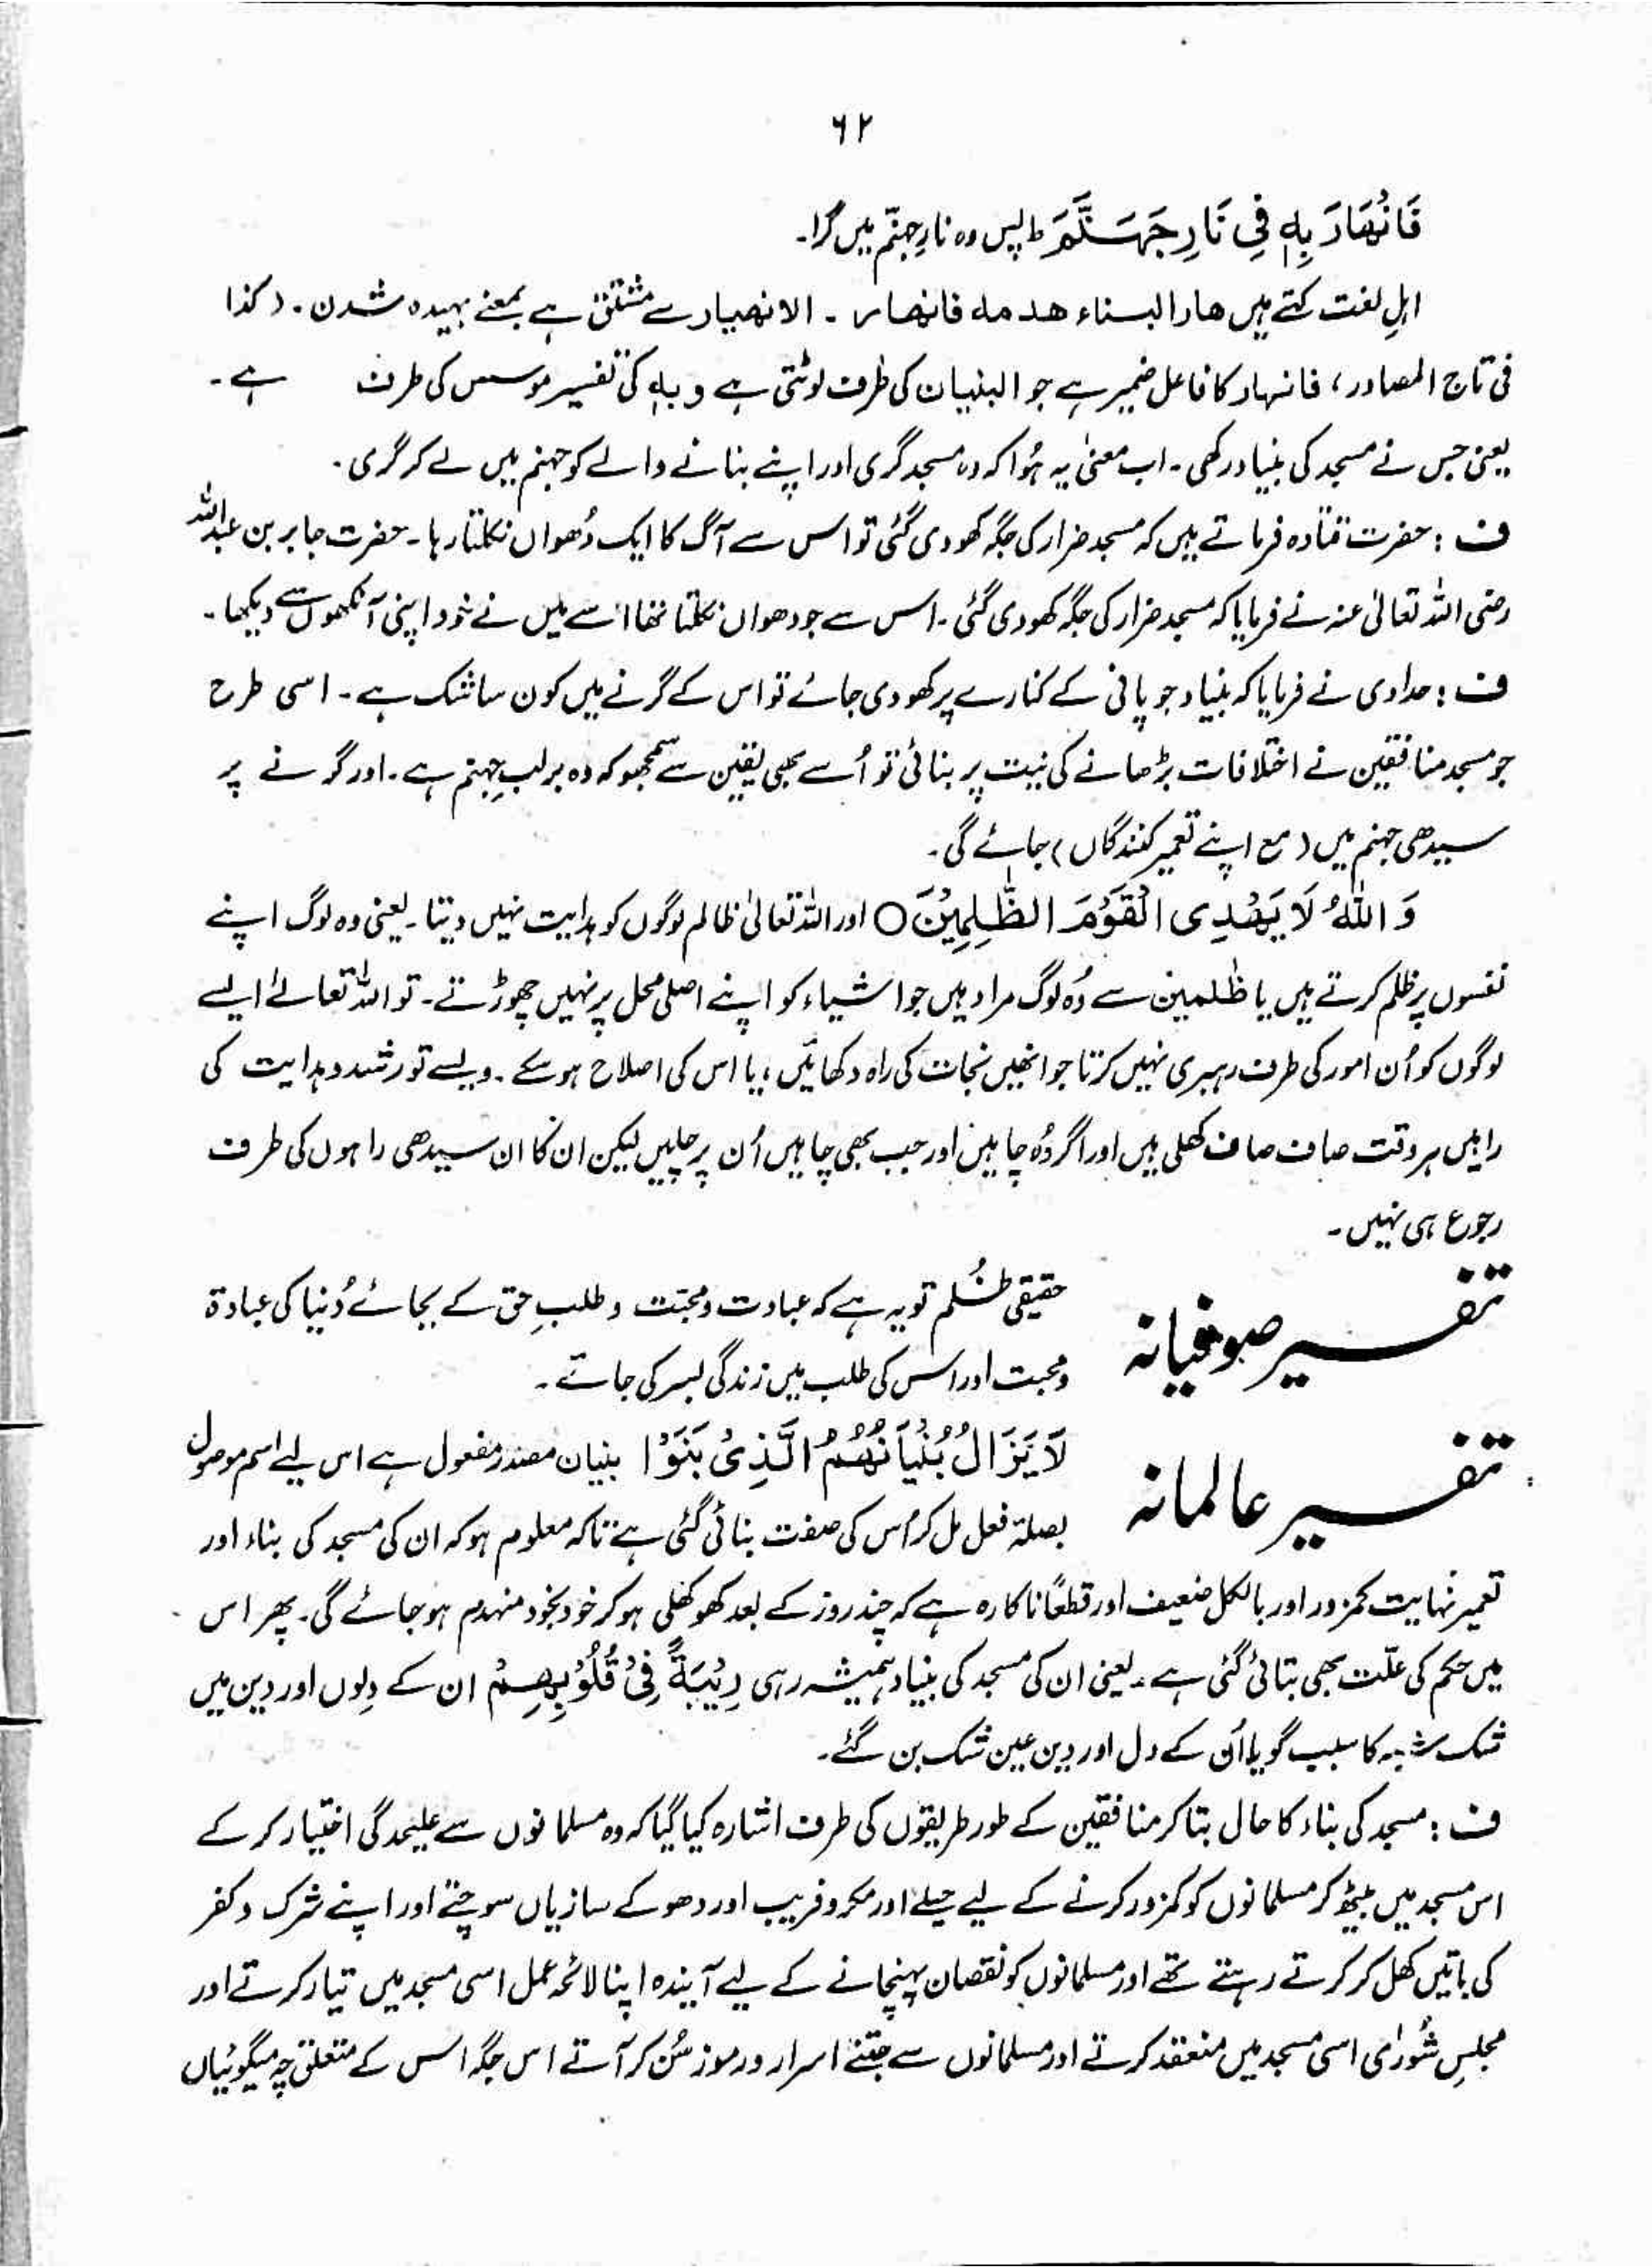 ۶۲
فَانْهَارَ بِهٖ فِی نَارِ جَهَنَّمَ ط پس وہ نارِ جہنّم میں گرا۔
اہلِ لغت کہتے ہیں هار البناء هدمه فانهار ۔ الانھیار سے مشتق ہے بمعنے بہیدہ شدن ۔ (کذا
فی تاج المصادر، فانہار کا فاعل ضمیر ہے جو البنیان کی طرف لوٹتی ہے و بِهٖ کی تفسیر موسس کی طرف ہے ۔
یعنی جس نے مسجد کی بنیاد رکھی ۔ اب معنیٰ یہ ہُوا کہ وہ مسجد گری اور اپنے بنانے والے کو جہنم میں لے کر گری ۔
ف : حضرت قتادہ فرماتے ہیں کہ مسجد ضرار کی جگہ کھودی گئی تو اس سے آگ کا ایک دُھواں نکلتا رہا ۔ حضرت جابر بن عبداللہ
رضی اللہ تعالیٰ عنہ نے فرمایا کہ مسجد ضرار کی جگہ کھودی گئی ۔ اس سے جو دھواں نکلتا تھا اُسے میں نے خود اپنی آنکھوں سے دیکھا ۔
ف : حدادی نے فرمایا کہ بنیاد جو پانی کے کنارے پر کھودی جائے تو اس کے گرنے میں کون سا شک ہے ۔ اسی طرح
جو مسجد منافقین نے اختلافات بڑھانے کی نیت پر بنائی تو اُسے بھی یقین سے سمجھو کہ وہ برلبِ جہنم ہے ۔ اور گرنے پر
سیدھی جہنم میں (مع اپنے تعمیر کنندگاں) جائے گی ۔
وَ اللّٰهُ لَا یَهْدِی الْقَوْمَ الظّٰلِمِیْنَ ○ اور اللہ تعالیٰ ظالم لوگوں کو ہدایت نہیں دیتا ۔ یعنی وہ لوگ اپنے
نفسوں پر ظلم کرتے ہیں یا ظٰلمین سے وُہ لوگ مراد ہیں جو اشیاء کو اپنے اصلی محل پر نہیں چھوڑتے ۔ تو اللہ تعالےٰ ایسے
لوگوں کو اُن امور کی طرف رہبری نہیں کرتا جو انھیں نجات کی راہ دکھائیں ، یا اس کی اصلاح ہوسکے ۔ ویسے تو رشد و ہدایت کی
راہیں ہر وقت صاف صاف کھلی ہیں اور اگر وُہ چاہیں اور جب بھی چاہیں اُن پر چلیں لیکن ان کا ان سیدھی راہوں کی طرف
رجوع ہی نہیں ۔
تفسیر صوفیانہ
حقیقی ظُلم تو یہ ہے کہ عبادت و محبّت و طلبِ حق کے بجائے دُنیا کی عبادۃ
و محبت اور اس کی طلب میں زندگی بسر کی جائے ۔
تفسیر عالمانہ
لَا یَزَالُ بُنْیَانُهُمُ الَّذِیْ بَنَوْا بنیان مصدر مفعول ہے اس لیے اسم موصول
بصلۃ فعل مل کر اُس کی صفت بنائی گئی ہے تاکہ معلوم ہو کہ ان کی مسجد کی بناء اور
تعمیر نہایت کمزور اور بالکل ضعیف اور قطعًا ناکارہ ہے کہ چند روز کے بعد کھوکھلی ہوکر خودبخود منہدم ہوجائے گی ۔ پھر اس
میں حکم کی علّت بھی بتائی گئی ہے ۔ یعنی ان کی مسجد کی بنیاد ہمیشہ رہی رِیْبَةً فِیْ قُلُوْبِهِمْ ان کے دِلوں اور دین میں
شک شبہ کا سبب گویا اُن کے دل اور دین عین شک بن گئے ۔
ف : مسجد کی بناء کا حال بتا کر منافقین کے طور طریقوں کی طرف اشارہ کیا گیا کہ وہ مسلمانوں سے علیحدگی اختیار کرکے
اس مسجد میں بیٹھ کر مسلمانوں کو کمزور کرنے کے لیے حیلے اور مکر و فریب اور دھوکے سازیاں سوچتے اور اپنے شرک و کفر
کی باتیں کھل کر کرتے رہتے تھے اور مسلمانوں کو نقصان پہنچانے کے لیے آیندہ اپنا لائحہ عمل اسی مسجد میں تیار کرتے اور
مجلسِ شُورٰی اسی مسجد میں منعقد کرتے اور مسلمانوں سے جتنے اسرار و رموز سُن کر آتے اس جگہ اس کے متعلق چہ میگوئیاں